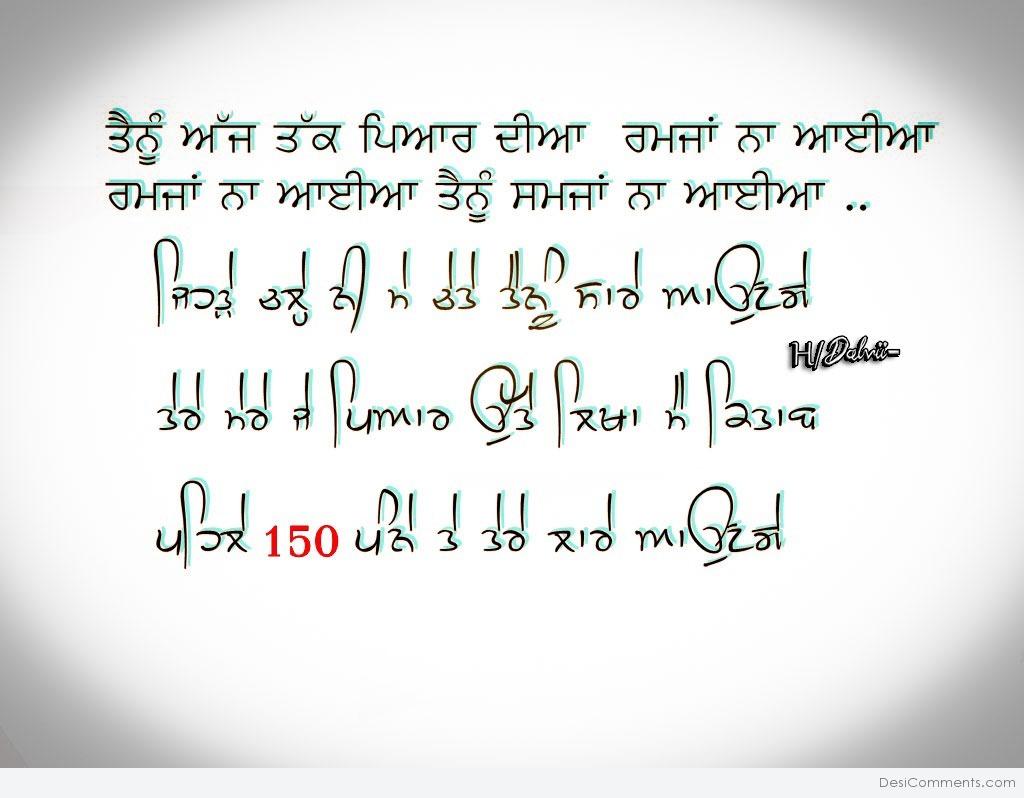 ਤੈਨੂੰ ਅੱਜ ਤੱਕ ਪਿਆਰ ਦੀਆ ਰਮਜਾਂ ਨਾ ਆਈਆ
ਰਮਜਾਂ ਨਾ ਆਈਆ ਤੈਨੂੰ ਸਮਜਾਂ ਨਾ ਆਈਆ ..
ਜਿਹੜੇ ਨੀ ਮੇ ਚੇਤੇ ਤੈਨੂੰ ਸਾਰੇ ਆਉਣਗੇ
ਤੇਰੇ ਮੇਰੇ ਜੇ ਪਿਆਰ ਉੱਤੇ ਲਿਖਾ ਮੈ ਕਿਤਾਬ
ਪਹਿਲੇ 150 ਪੰਨੇ ਤੇ ਤੇਰੇ ਲਾਰੇ ਆਉਣਗੇ
DesiComments.com